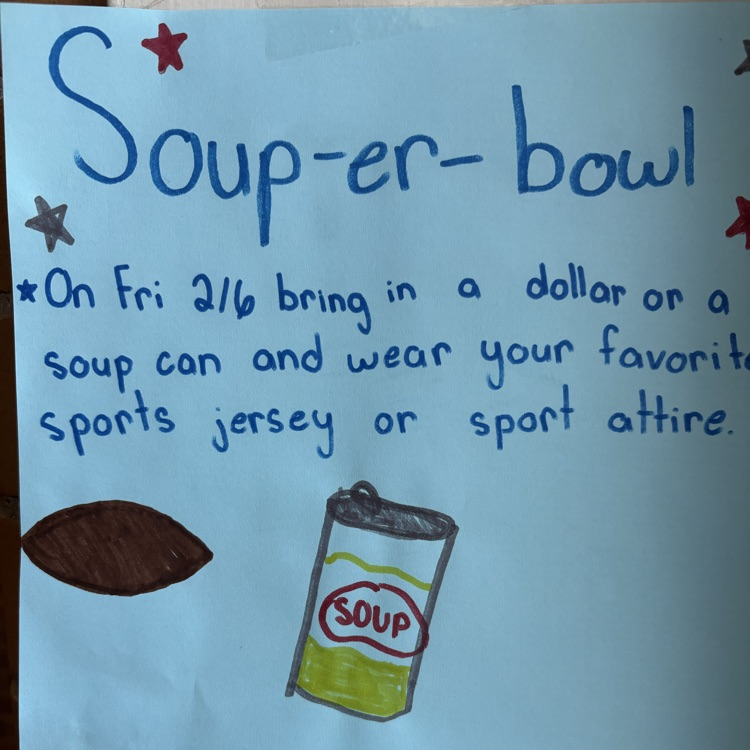 Soup-er-bowl
★On Fri 2/6 bring in a dollar or a
soup can and wear your favorite
sports jersey or sport attire.
SOUP